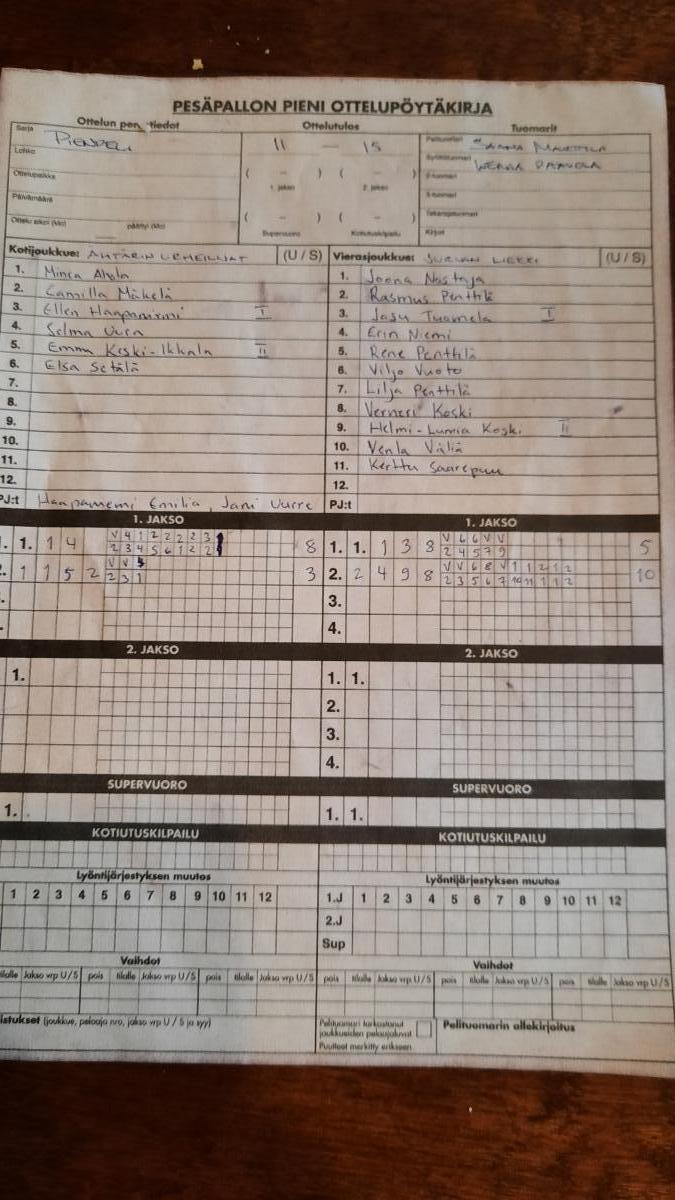 PESÄPALLON PIENI OTTELUPÖYTÄKIRJA
Ottelun perustiedot Ottelutulos Tuomarit
Sarja PIENPELI 11 – 15 Pelituomari
Lohko ( – ) ( – ) Syöttötuomari
Ottelupaikka 1. jakso 2. jakso 2-tuomari
Päivämäärä 3-tuomari
( – ) ( – ) Takarajatuomari
Ottelu alkoi (klo) päättyi (klo) Supervuoro Kotiutuskilpailu Kirjuri
Kotijoukkue: ÄHTÄRIN URHEILIJAT (U / S) Vierasjoukkue: (U / S)
1. Minea Ahola 1. Joona Nostaja
2. Camilla Mäkelä 2. Rasmus Penttilä
3. Ellen Haapaniemi I 3. Jasu Tuomela I
4. Selma 4. Erin Niemi
5. Emma Keski-Ikkala II 5. Rene Penttilä
6. Elsa Setälä 6. Viljo Vuoto
7. 7. Lilja Penttilä
8. 8. Verneri Koski
9. 9. Helmi-Lumia Koski II
10. 10. Venla
11. 11. Kerttu
12. 12.
PJ:t Haapaniemi Emilia, Jani PJ:t
1. JAKSO 1. JAKSO
1. 1 4 V 4 1 2 2 2 2 3 8 1. 1. 1 3 8 V 6 6 V V 5
2 3 4 5 6 1 2 2 2 4 5 7 9
1 1 5 2 V V 3 2. 2 4 9 8 V V 6 8 V 1 1 2 1 2 10
2 3 1 2 3 5 6 7 10 11 1 1 2
3.
4.
2. JAKSO 2. JAKSO
1. 1. 1.
2.
3.
4.
SUPERVUORO SUPERVUORO
1. 1. 1.
KOTIUTUSKILPAILU KOTIUTUSKILPAILU
Lyöntijärjestyksen muutos Lyöntijärjestyksen muutos
1 2 3 4 5 6 7 8 9 10 11 12 1.J 1 2 3 4 5 6 7 8 9 10 11 12
2.J
Sup
Vaihdot Vaihdot
tilalle Jakso vrp U/S pois tilalle Jakso vrp U/S pois tilalle Jakso vrp U/S pois tilalle Jakso vrp U/S pois tilalle Jakso vrp U/S pois tilalle Jakso vrp U/S
istukset (joukkue, pelaaja nro, jakso vrp U / S ja syy) Pelituomari tarkastanut joukkueiden pelaajaluvat Pelituomarin allekirjoitus
Puutteet merkitty erikseen